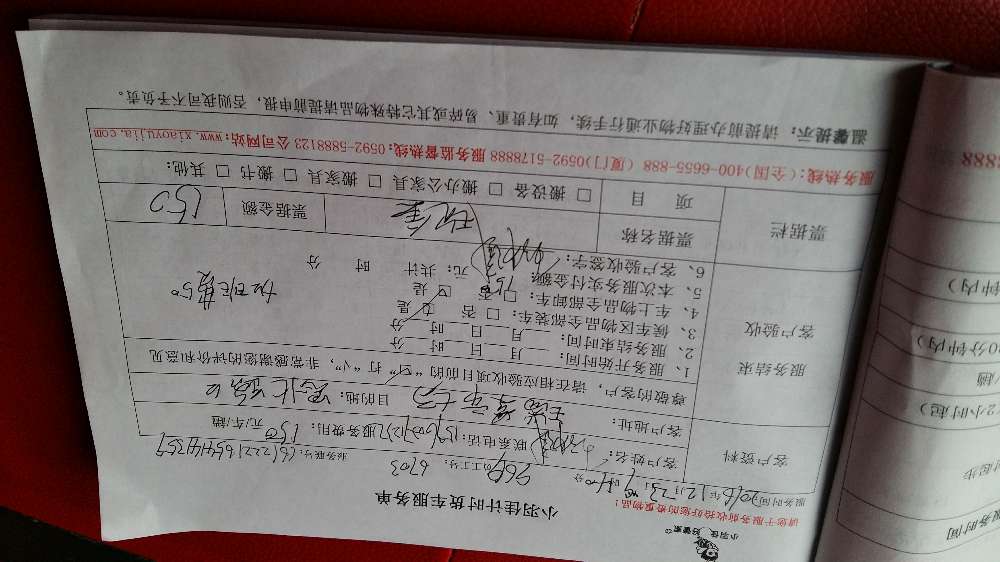 小羽佳 好管家
请您于服务前收拾好您的贵重物品！
小羽佳计时货车服务单
服务时间：2016年12月23日 9时00分 员工工号：6703 服务账号：
客户资料
客户姓名： 联系电话： 服务费用：150元/车/趟
客户地址： 目的地：
尊敬的客户，请在相应验收项目前的“□”打“√”，非常感谢您的评价和意见
服务结束
客户验收
1、服务开始时间： 月 日 时 分
2、服务结束时间： 月 日 时 分
3、候车区物品全部装车：□ 是 □ 否
4、车上物品全部卸车：□ 是 □ 否
5、本次服务实付金额：150 元；共计 时 分
加班费50
6、客户验收签字：
票据栏
票据名称 现金 票据金额 150
项 目 □ 搬设备 □ 搬办公家具 □ 搬家具 □ 搬书 □ 其他：
服务热线：(全国)400-6655-888 (厦门)0592-5178888 服务监督热线：0592-5888123 公司网站：www.xiaoyujia.com
温馨提示：请提前办理好物业通行手续，如有贵重、易碎或其它特殊物品请提前申报，否则我司不予负责。
服务时间
起步
2小时起)
/趟
0分钟内)
钟内)
8888